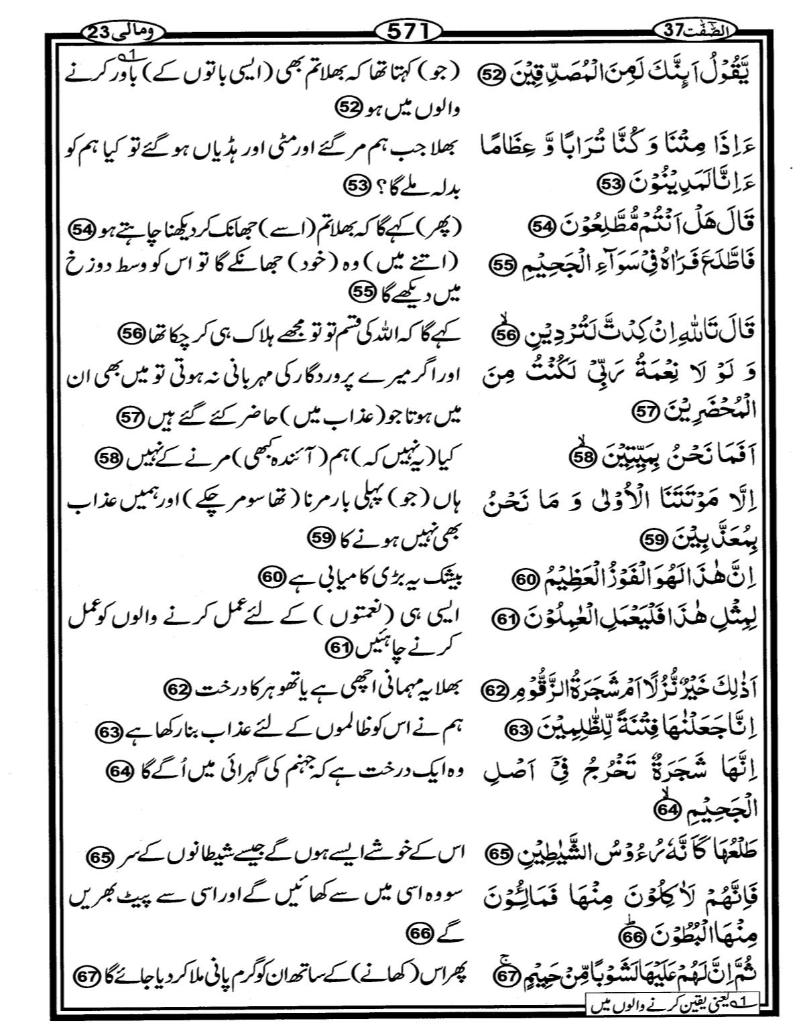 الصّٰفّٰت 37
571
ومالی 23
یَّقُوۡلُ اَئِنَّکَ لَمِنَ الۡمُصَدِّقِیۡنَ 52
(جو) کہتا تھا کہ بھلا تم بھی (ایسی باتوں کے) باور کرنے
والوں میں ہو 52
ءَاِذَا مِتۡنَا وَ کُنَّا تُرَابًا وَّ عِظَامًا
ءَاِنَّا لَمَدِیۡنُوۡنَ 53
بھلا جب ہم مر گئے اور مٹی اور ہڈیاں ہو گئے تو کیا ہم کو
بدلہ ملے گا؟ 53
قَالَ ہَلۡ اَنۡتُمۡ مُّطَّلِعُوۡنَ 54
(پھر) کہے گا کہ بھلا تم (اسے) جھانک کر دیکھنا چاہتے ہو 54
فَاطَّلَعَ فَرَاٰہُ فِیۡ سَوَآءِ الۡجَحِیۡمِ 55
(اتنے میں) وہ (خود) جھانکے گا تو اس کو وسط دوزخ
میں دیکھے گا 55
قَالَ تَاللّٰہِ اِنۡ کِدۡتَّ لَتُرۡدِیۡنِ ۙ 56
کہے گا کہ اللہ کی قسم تو تو مجھے ہلاک ہی کر چکا تھا 56
وَ لَوۡ لَا نِعۡمَۃُ رَبِّیۡ لَکُنۡتُ مِنَ
الۡمُحۡضَرِیۡنَ 57
اور اگر میرے پروردگار کی مہربانی نہ ہوتی تو میں بھی ان
میں ہوتا جو (عذاب میں) حاضر کئے گئے ہیں 57
اَفَمَا نَحۡنُ بِمَیِّتِیۡنَ ۙ 58
کیا (یہ نہیں کہ) ہم (آئندہ کبھی) مرنے کے نہیں 58
اِلَّا مَوۡتَتَنَا الۡاُوۡلٰی وَ مَا نَحۡنُ
بِمُعَذَّبِیۡنَ 59
ہاں (جو) پہلی بار مرنا (تھا سو مر چکے) اور ہمیں عذاب
بھی نہیں ہونے کا 59
اِنَّ ہٰذَا لَہُوَ الۡفَوۡزُ الۡعَظِیۡمُ 60
بیشک یہ بڑی کامیابی ہے 60
لِمِثۡلِ ہٰذَا فَلۡیَعۡمَلِ الۡعٰمِلُوۡنَ 61
ایسی ہی (نعمتوں) کے لئے عمل کرنے والوں کو عمل
کرنے چاہئیں 61
اَذٰلِکَ خَیۡرٌ نُّزُلًا اَمۡ شَجَرَۃُ الزَّقُّوۡمِ 62
بھلا یہ مہمانی اچھی ہے یا تھوہر کا درخت 62
اِنَّا جَعَلۡنٰہَا فِتۡنَۃً لِّلظّٰلِمِیۡنَ 63
ہم نے اس کو ظالموں کے لئے عذاب بنا رکھا ہے 63
اِنَّہَا شَجَرَۃٌ تَخۡرُجُ فِیۡۤ اَصۡلِ
الۡجَحِیۡمِ ۙ 64
وہ ایک درخت ہے کہ جہنم کی گہرائی میں اُگے گا 64
طَلۡعُہَا کَاَنَّہٗ رُءُوۡسُ الشَّیٰطِیۡنِ 65
اس کے خوشے ایسے ہوں گے جیسے شیطانوں کے سر 65
فَاِنَّہُمۡ لَاٰکِلُوۡنَ مِنۡہَا فَمَالِـُٔوۡنَ
مِنۡہَا الۡبُطُوۡنَ ؕ 66
سو وہ اسی میں سے کھائیں گے اور اسی سے پیٹ بھریں
گے 66
ثُمَّ اِنَّ لَہُمۡ عَلَیۡہَا لَشَوۡبًا مِّنۡ حَمِیۡمٍ ۚ 67
پھر اس (کھانے) کے ساتھ ان کو گرم پانی ملا کر دیا جائے گا 67
1؎ یعنی یقین کرنے والوں میں